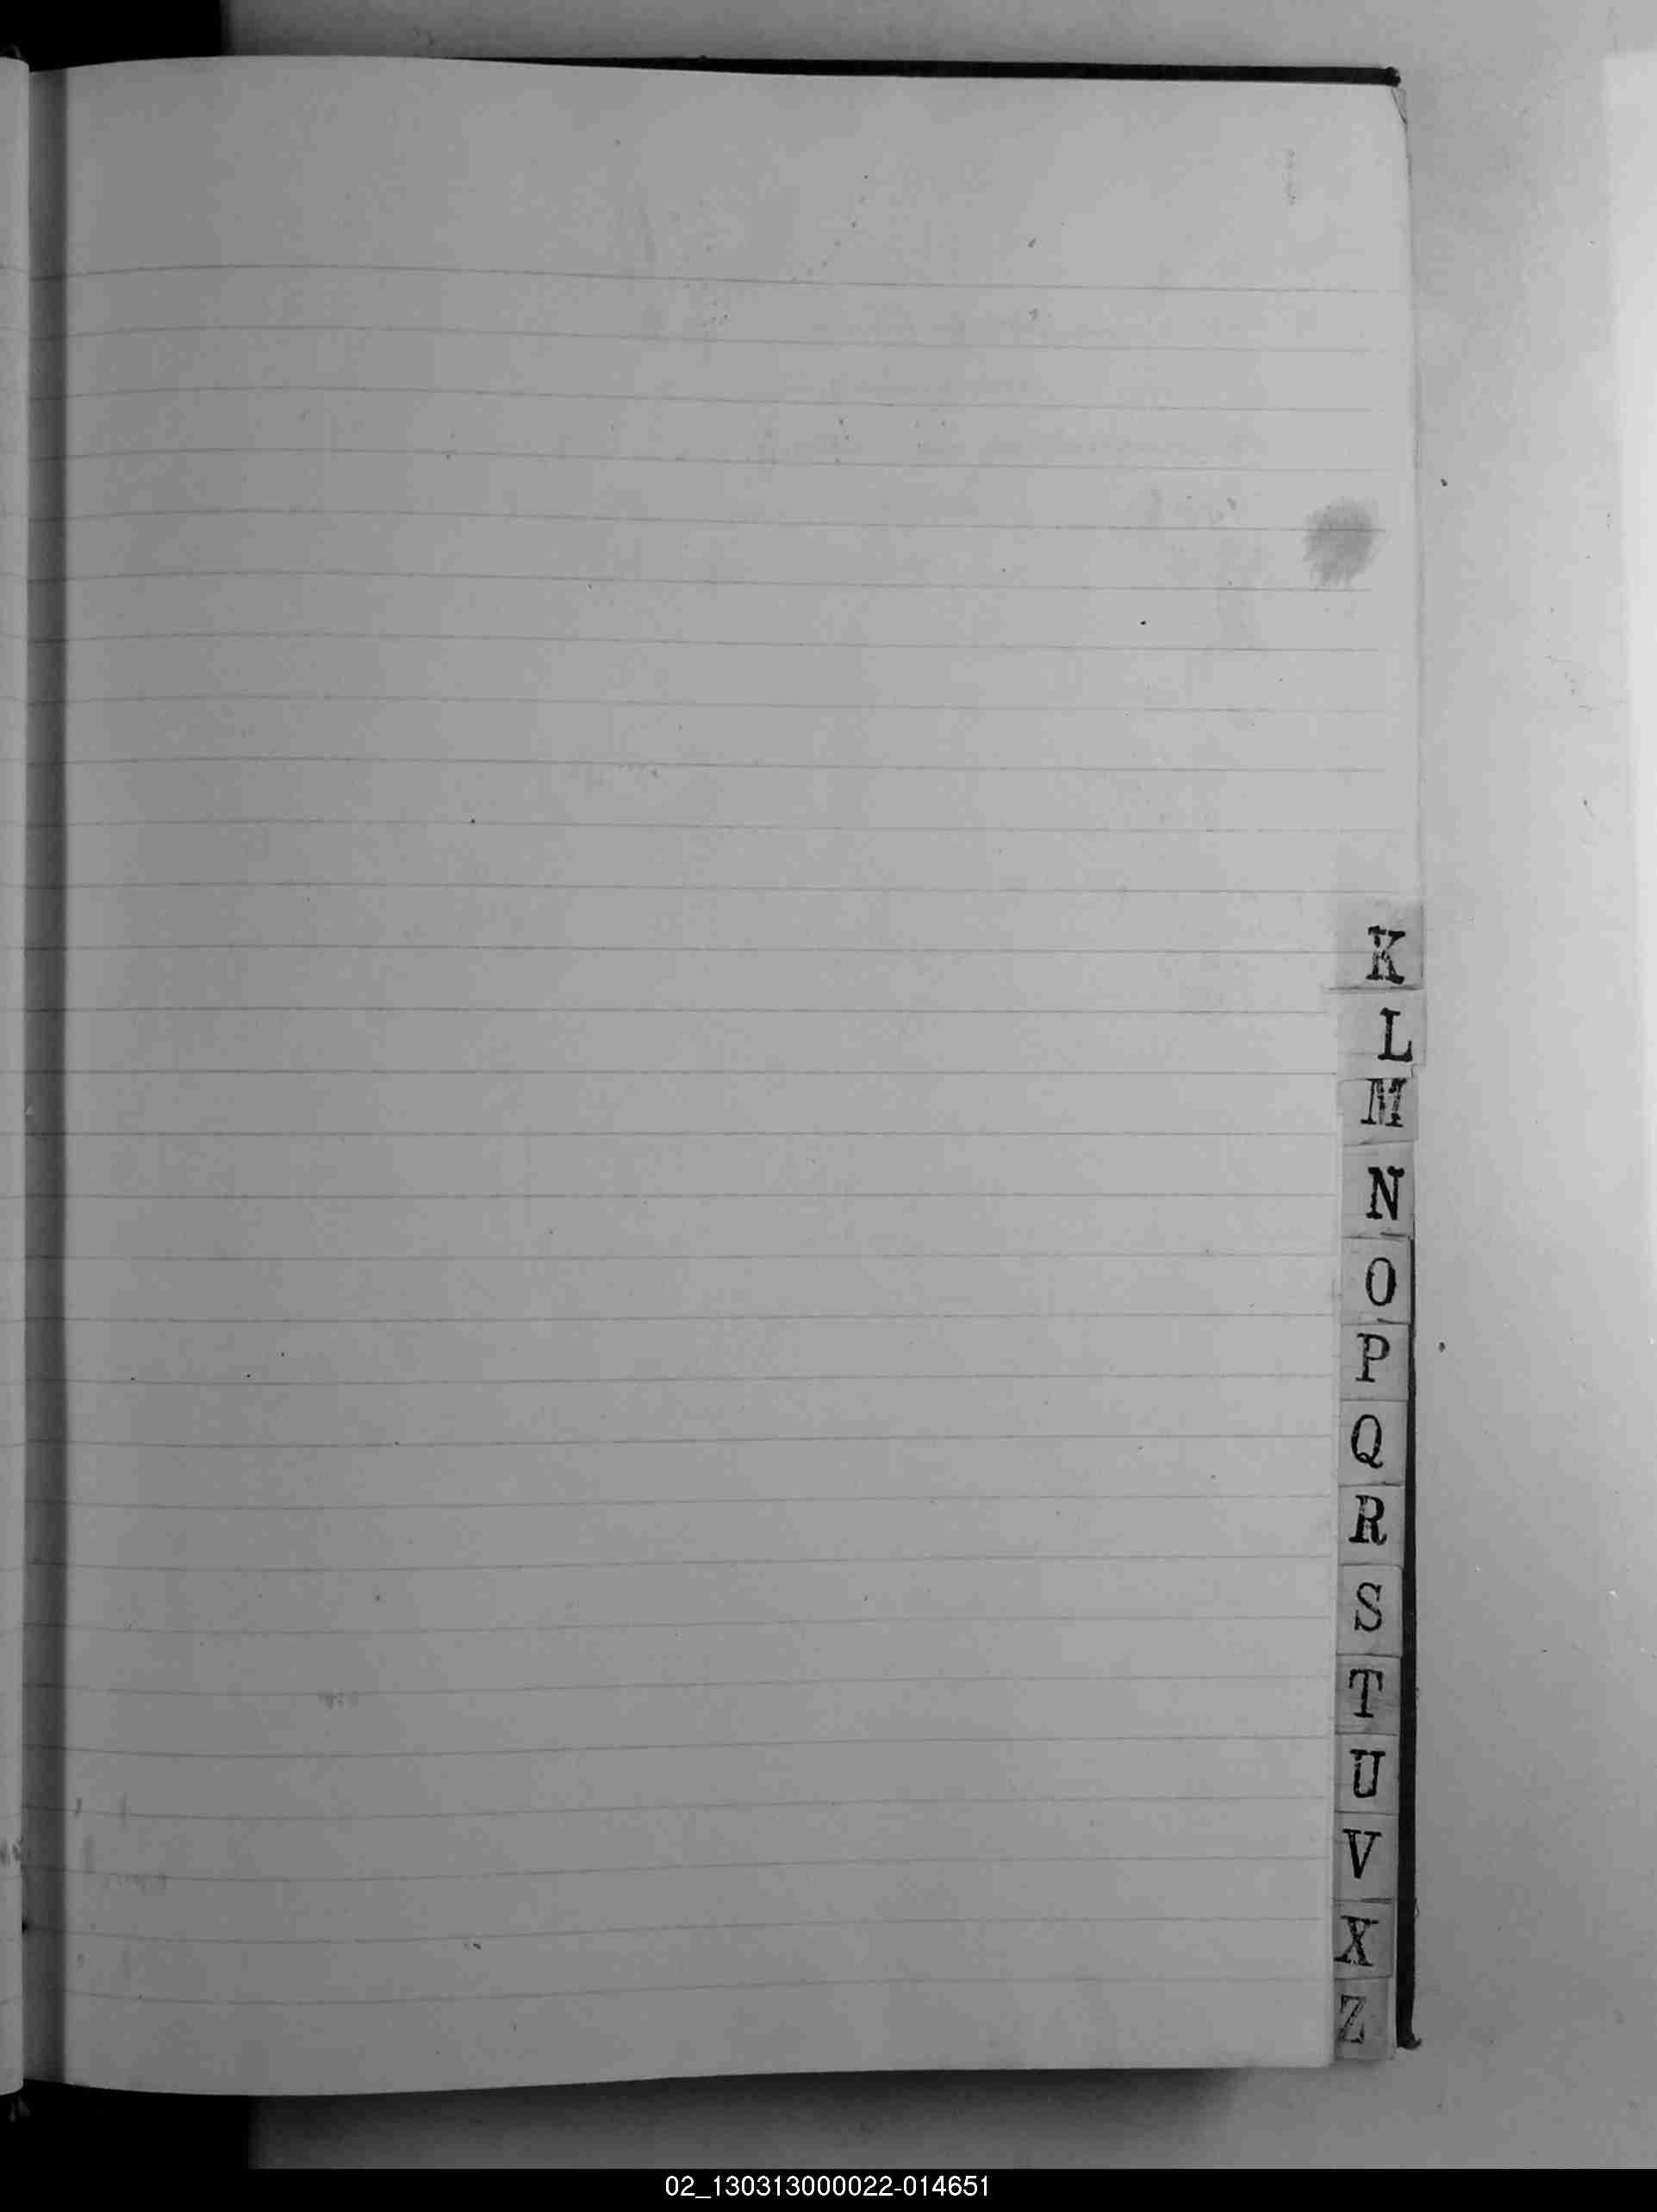 K
L
M
N
O
P
Q
R
S
T
U
V
X
Z
02_130313000022-014651